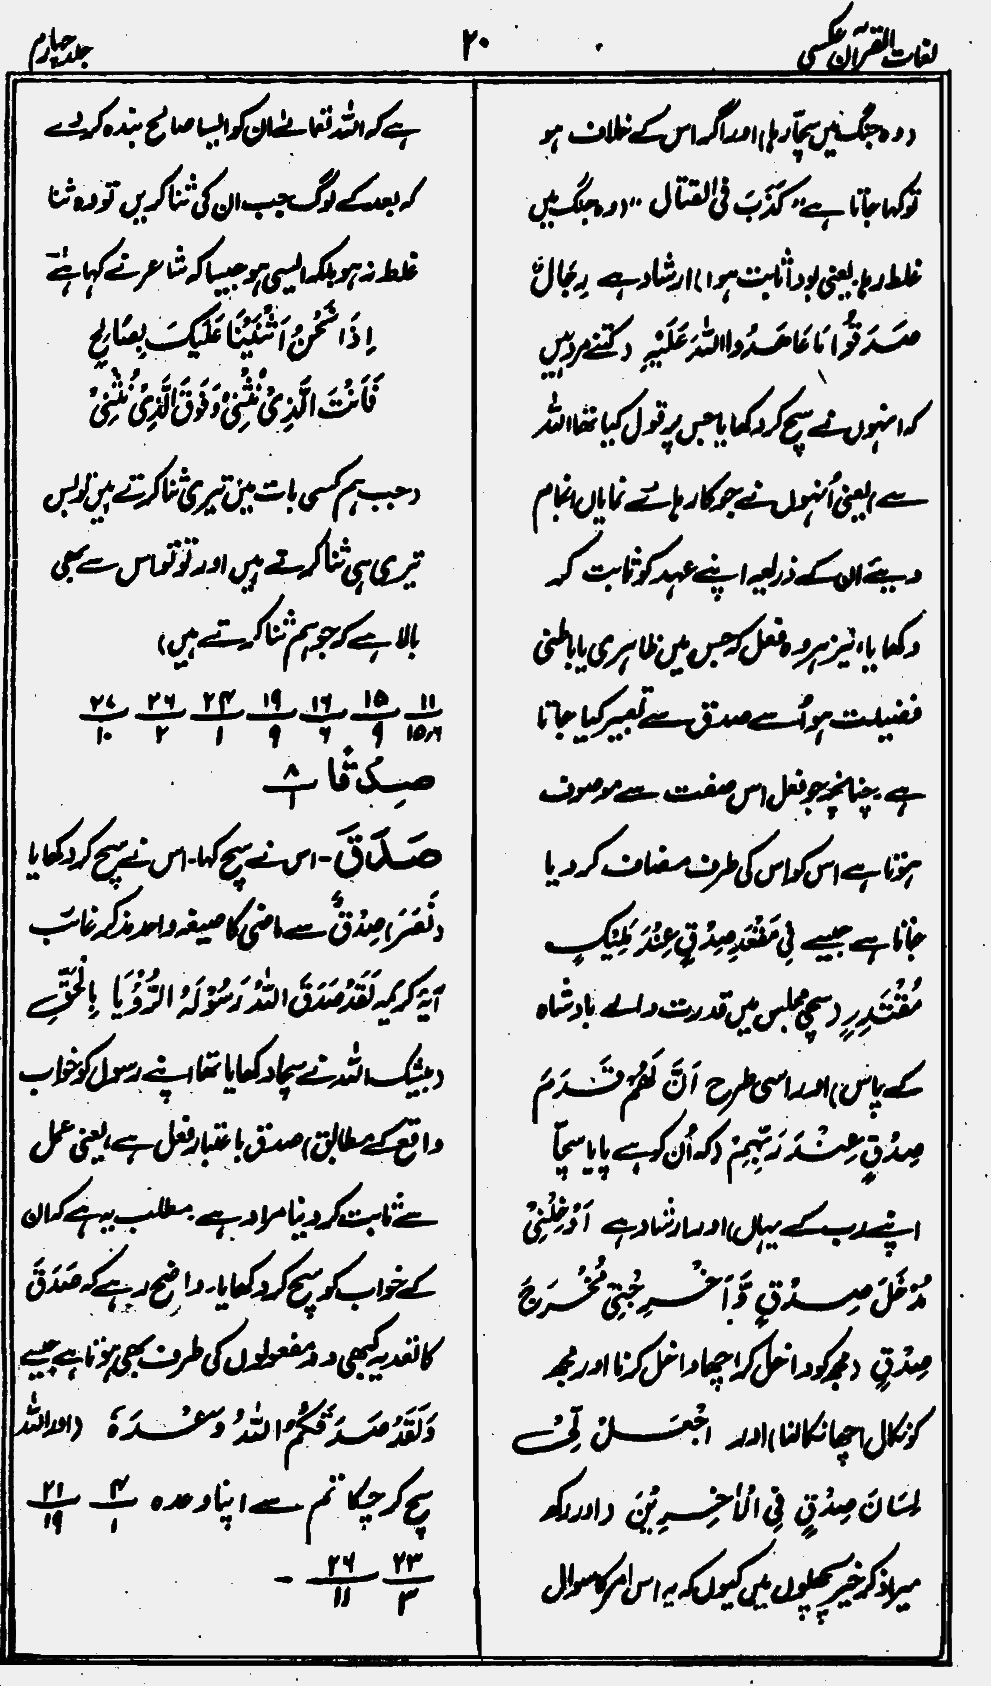 لغات القرآن عکسی
۲۰
جلد چہارم
(وہ جنگ میں سچّا رہا) اور اگر اس کے خلاف ہو
تو کہا جاتا ہے "کَذَبَ فی القتال" (وہ جنگ میں
غلط رہا یعنی بودا ثابت ہوا) ارشاد ہے رِجَالٌ
صَدَقُوْا مَا عَاھَدُوا اللّٰہَ عَلَیْہِ (کتنے مرد ہیں
کہ انہوں نے سچ کر دکھایا جس پر قول کیا تھا اللہ
سے) یعنی اُنہوں نے جو کارہائے نمایاں انجام
دیئے ان کے ذریعہ اپنے عہد کو ثابت کر
دکھایا، نیز ہر وہ فعل کہ جس میں ظاہری یا باطنی
فضیلت ہو اُسے صدق سے تعبیر کیا جاتا
ہے۔ چنانچہ جو فعل اس صفت سے موصوف
ہوتا ہے اس کو اِس کی طرف مضاف کر دیا
جاتا ہے جیسے فِیْ مَقْعَدِ صِدْقٍ عِنْدَ مَلِیْکٍ
مُقْتَدِرٍ (سچی مجلس میں قدرت والے بادشاہ
کے پاس) اور اسی طرح اَنَّ لَھُمْ قَدَمَ
صِدْقٍ عِنْدَ رَبِّہِمْ (کہ اُن کو ہے پایا سچّا
اپنے رب کے یہاں) اور ارشاد ہے اَدْخِلْنِیْ
مُدْخَلَ صِدْقٍ وَّاَخْرِجْنِیْ مُخْرَجَ
صِدْقٍ (مجھ کو داخل کر اچھا داخل کرنا اور مجھ
کو نکال اچھا نکالنا) اور اجْعَلْ لِّیْ
لِسَانَ صِدْقٍ فِی الْاٰخِرِیْنَ (اور رکھ
میرا ذکر خیر پچھلوں میں کیوں کہ یہ اس امر کا سوال
ہے کہ اللہ تعالےٰ ان کو ایسا صالح بندہ کر دے
کہ بعد کے لوگ جب ان کی ثنا کریں تو وہ ثنا
غلط نہ ہو بلکہ ایسی ہو جیسا کہ شاعر نے کہا ہے
اِذَا نَحْنُ اَثْنَیْنَا عَلَیْکَ بِصَالِحٍ
فَاَنْتَ الَّذِیْ نُثْنِیْ وَفَوْقَ الَّذِیْ نُثْنِیْ
(جب ہم کسی بات میں تیری ثنا کرتے ہیں تو بس
تیری ہی ثنا کرتے ہیں اور تو تو اس سے بھی
بالا ہے کہ جو ہم ثنا کرتے ہیں)
۱۱/۱۵،۶ ۱۵/۹ ۱۶/۶ ۱۹/۹ ۲۴/۱ ۲۶/۲ ۲۷/۱۰
صِدْقًا ۸/۱
صَدَقَ - اس نے سچ کہا۔ اس نے سچ کر دکھایا
(نَصَرَ) صِدْقٌ سے ماضی کا صیغہ واحد مذکر غائب
آیۂ کریمہ لَقَدْ صَدَقَ اللّٰہُ رَسُوْلَہُ الرُّؤْیَا بِالْحَقِّ
(بیشک اللہ نے سچا دکھایا تھا اپنے رسول کو خواب
واقع کے مطابق) صدق باعتبار فعل ہے، یعنی عمل
سے ثابت کر دینا مراد ہے۔ مطلب یہ ہے کہ ان
کے خواب کو سچ کر دکھایا۔ واضح رہے کہ صَدَقَ
کا تعدیہ کبھی دو مفعولوں کی طرف بھی ہوتا ہے جیسے
وَلَقَدْ صَدَقَکُمُ اللّٰہُ وَعْدَہٗ (اور اللہ
سچ کر چکا تم سے اپنا وعدہ ۴/۱ ۲۱/۱۹
۲۳/۳ ۲۶/۱۱ -